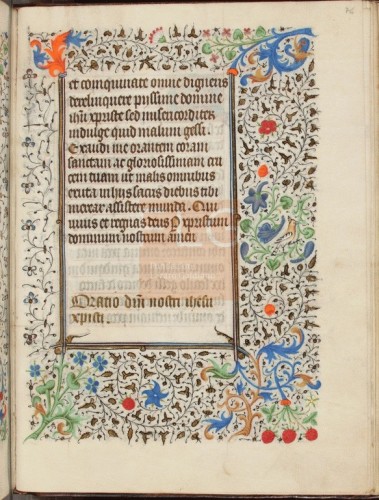 et coinquinate omne digneris
derelinquere piissime domine
ihu xpriste sed misericorditer
indulge quid malum gessi.
Exaudi me orantem coram
sanctam ac gloriosissimam cru
cem tuam ut malis omnibus
exuta in hiis sacris diebus tibi
merear assistere munda. Qui
viuis et regnas deus P xpristum
dominum nostrum amen
Oratio dni nostri ihesu
xpisti.